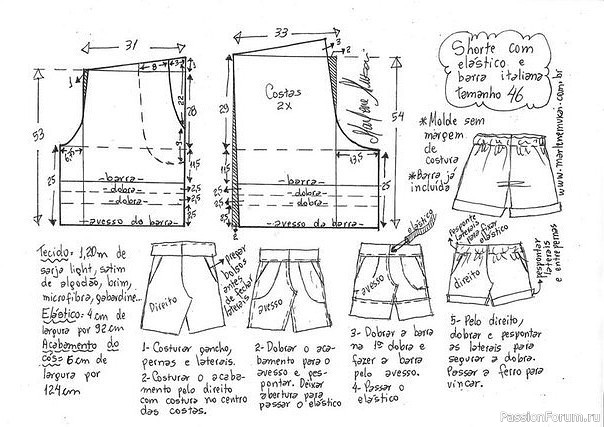 31
33
1
8
3
3
2
Shorte com
elástico e
barra italiana
tamanho 46
Costas
2X
Marlene Mukai
www.marlenemukai.com.br
*Molde sem
margem
de
costura
*Barra já
incluída
53
28
22
29
54
9
6,5
13,5
11,5
11,5
25
25
-barra-
-dobra-
-dobra-
avesso da barra-
2,5
2,5
25
-barra-
-dobra-
-dobra-
-avesso da barra-
2,5
2,5
2
Tecido= 1,20m de
sarja light, cetim
de algodão, brim,
microfibra, gabardine...
Elástico= 4cm de
largura por 92cm
Acabamento do
cós= 6cm de
largura por
124cm
Direito
pregar
bolsos
antes
de fechar
laterais
avesso
elástico
avesso
pesponte
laterais
para fixar
elástico
direito
pespontar
laterais
e entrepernas
1- Costurar gancho,
pernas e laterais.
2- Costurar o acaba-
mento pelo direito
com costura no centro
das costas.
2- Dobrar o aca-
bamento para o
avesso e pes-
pontar. Deixar
abertura para
passar o elástico
3- Dobrar a barra
na 1ª dobra e
fazer a barra
pelo avesso.
4- Passar o
elástico
5- Pelo direito,
dobrar e pespontar
as laterais para
segurar a dobra.
Passar a ferro para
vincar.
PassionForum.ru